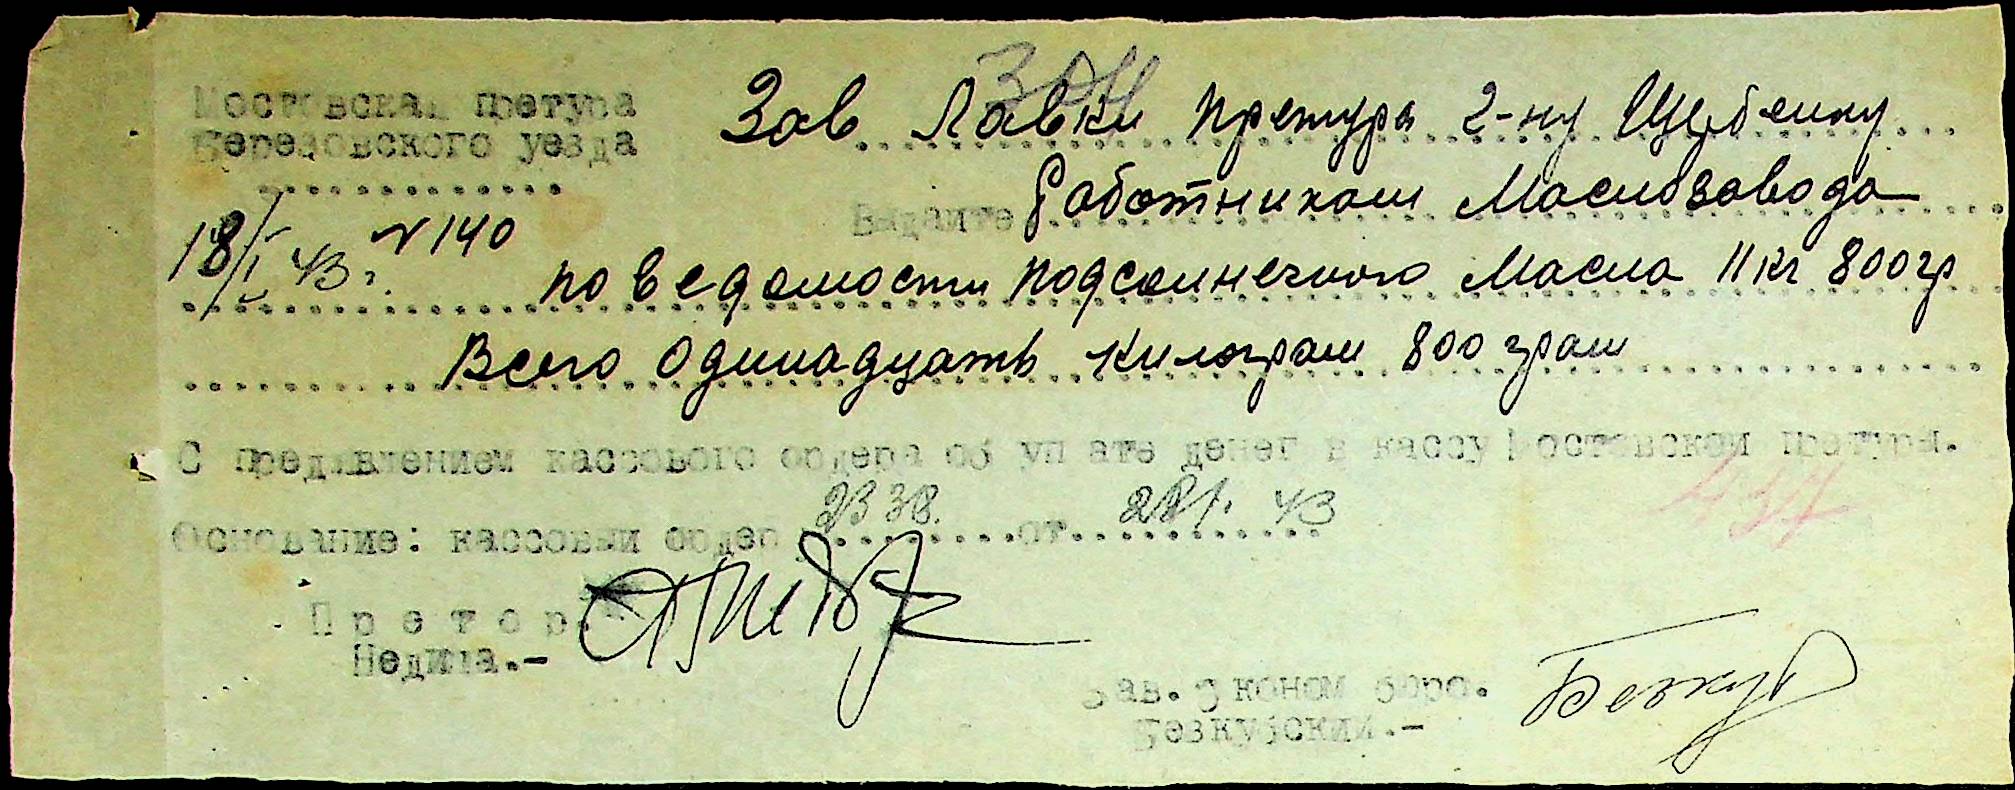 Мостовская претура
Березовского уезда
18/I 43 г. N 140
Зав Лавки претуры 2-ну Щербенку
Выдайте Работникам Маслозавода
по ведомости подсолнечного Масла 11 кг 800 гр
Всего Одинадцать килограм 800 грам
С предявлением кассового ордера об уплате денег в кассу Мостовской претуры.
Основание: кассовый ордер 2338. от 28/I. 43
Претор.
Недина.-
Зав. Эконом бюро.
Безкубский.-